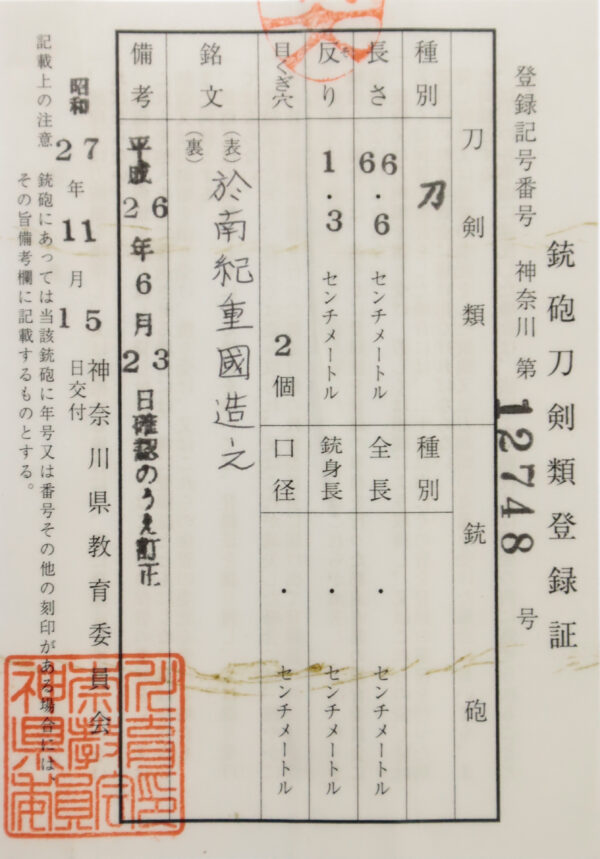 銃砲刀剣類登録証
登録記号番号 神奈川 第 12748 号
刀剣類 銃砲
種別 刀 種別
長さ 66.6 センチメートル 全長 ・ センチメートル
反り 1.3 センチメートル 銃身長 ・ センチメートル
目くぎ穴 2 個 口径 ・ センチメートル
銘文 (表) 於南紀重國造之
(裏)
備考 平成26年6月23日確認のうえ訂正
神奈川県教育委員会
昭和27年11月15日交付
記載上の注意 銃砲にあっては当該銃砲に年号又は番号その他の刻印がある場合には、
その旨備考欄に記載するものとする。